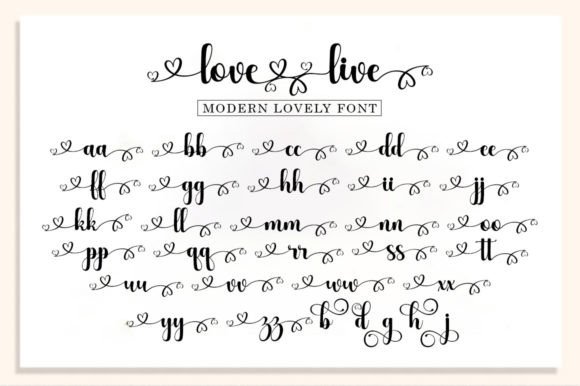 love live
MODERN LOVELY FONT
aa bb cc dd ee
ff gg hh ii jj
kk ll mm nn oo
pp qq rr ss tt
uu vv ww xx
yy zz b d g h j